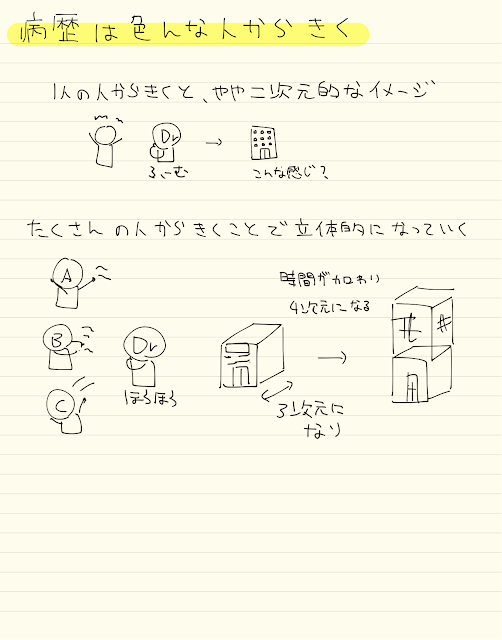 病歴は色んな人からきく
1人の人からきくと、やや二次元的なイメージ
Dr
ふーむ
こんな感じ?
たくさんの人からきくことで立体的になっていく
A
B
C
Dr
ほうほう
3次元に
なり
時間が加わり
4次元になる